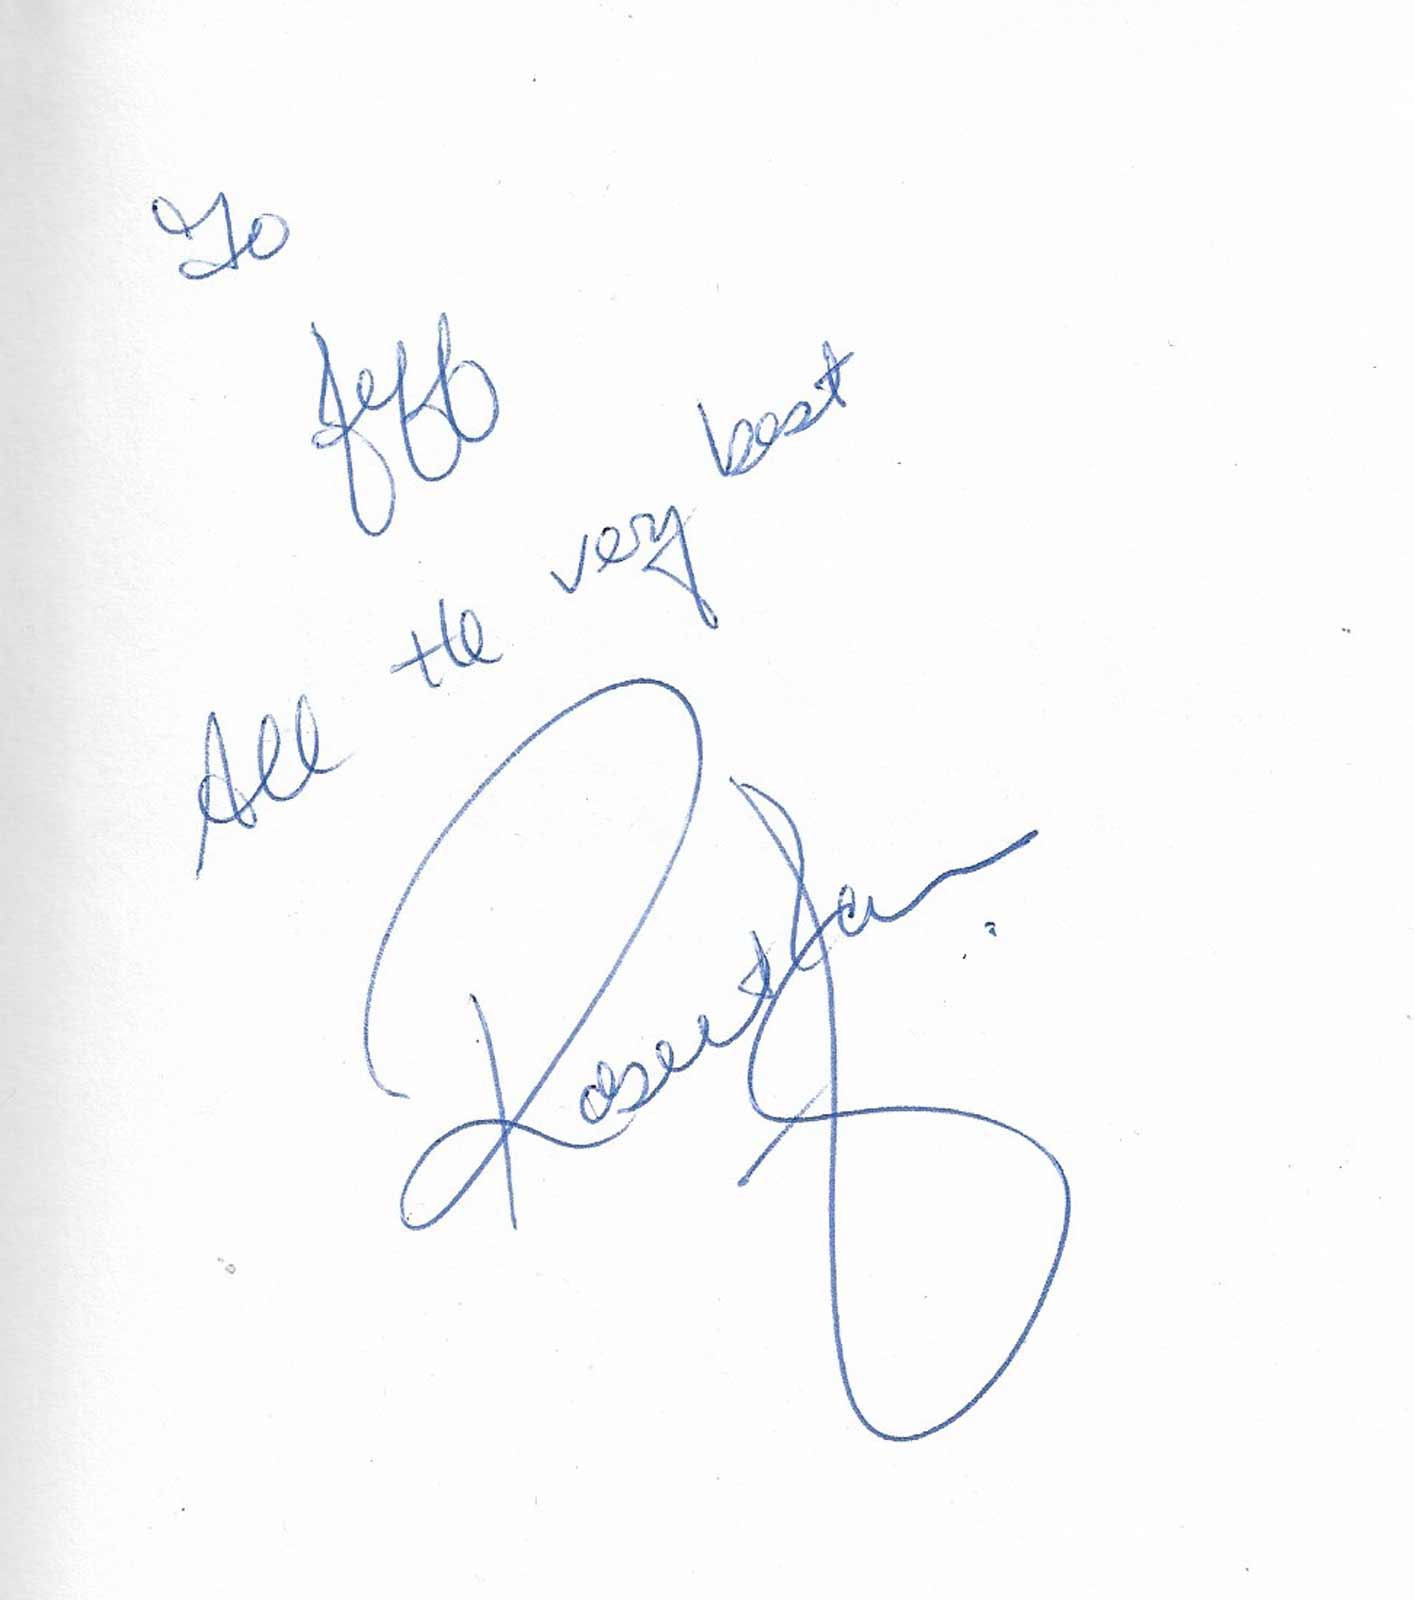 To
Jeff
All the very best
Robert